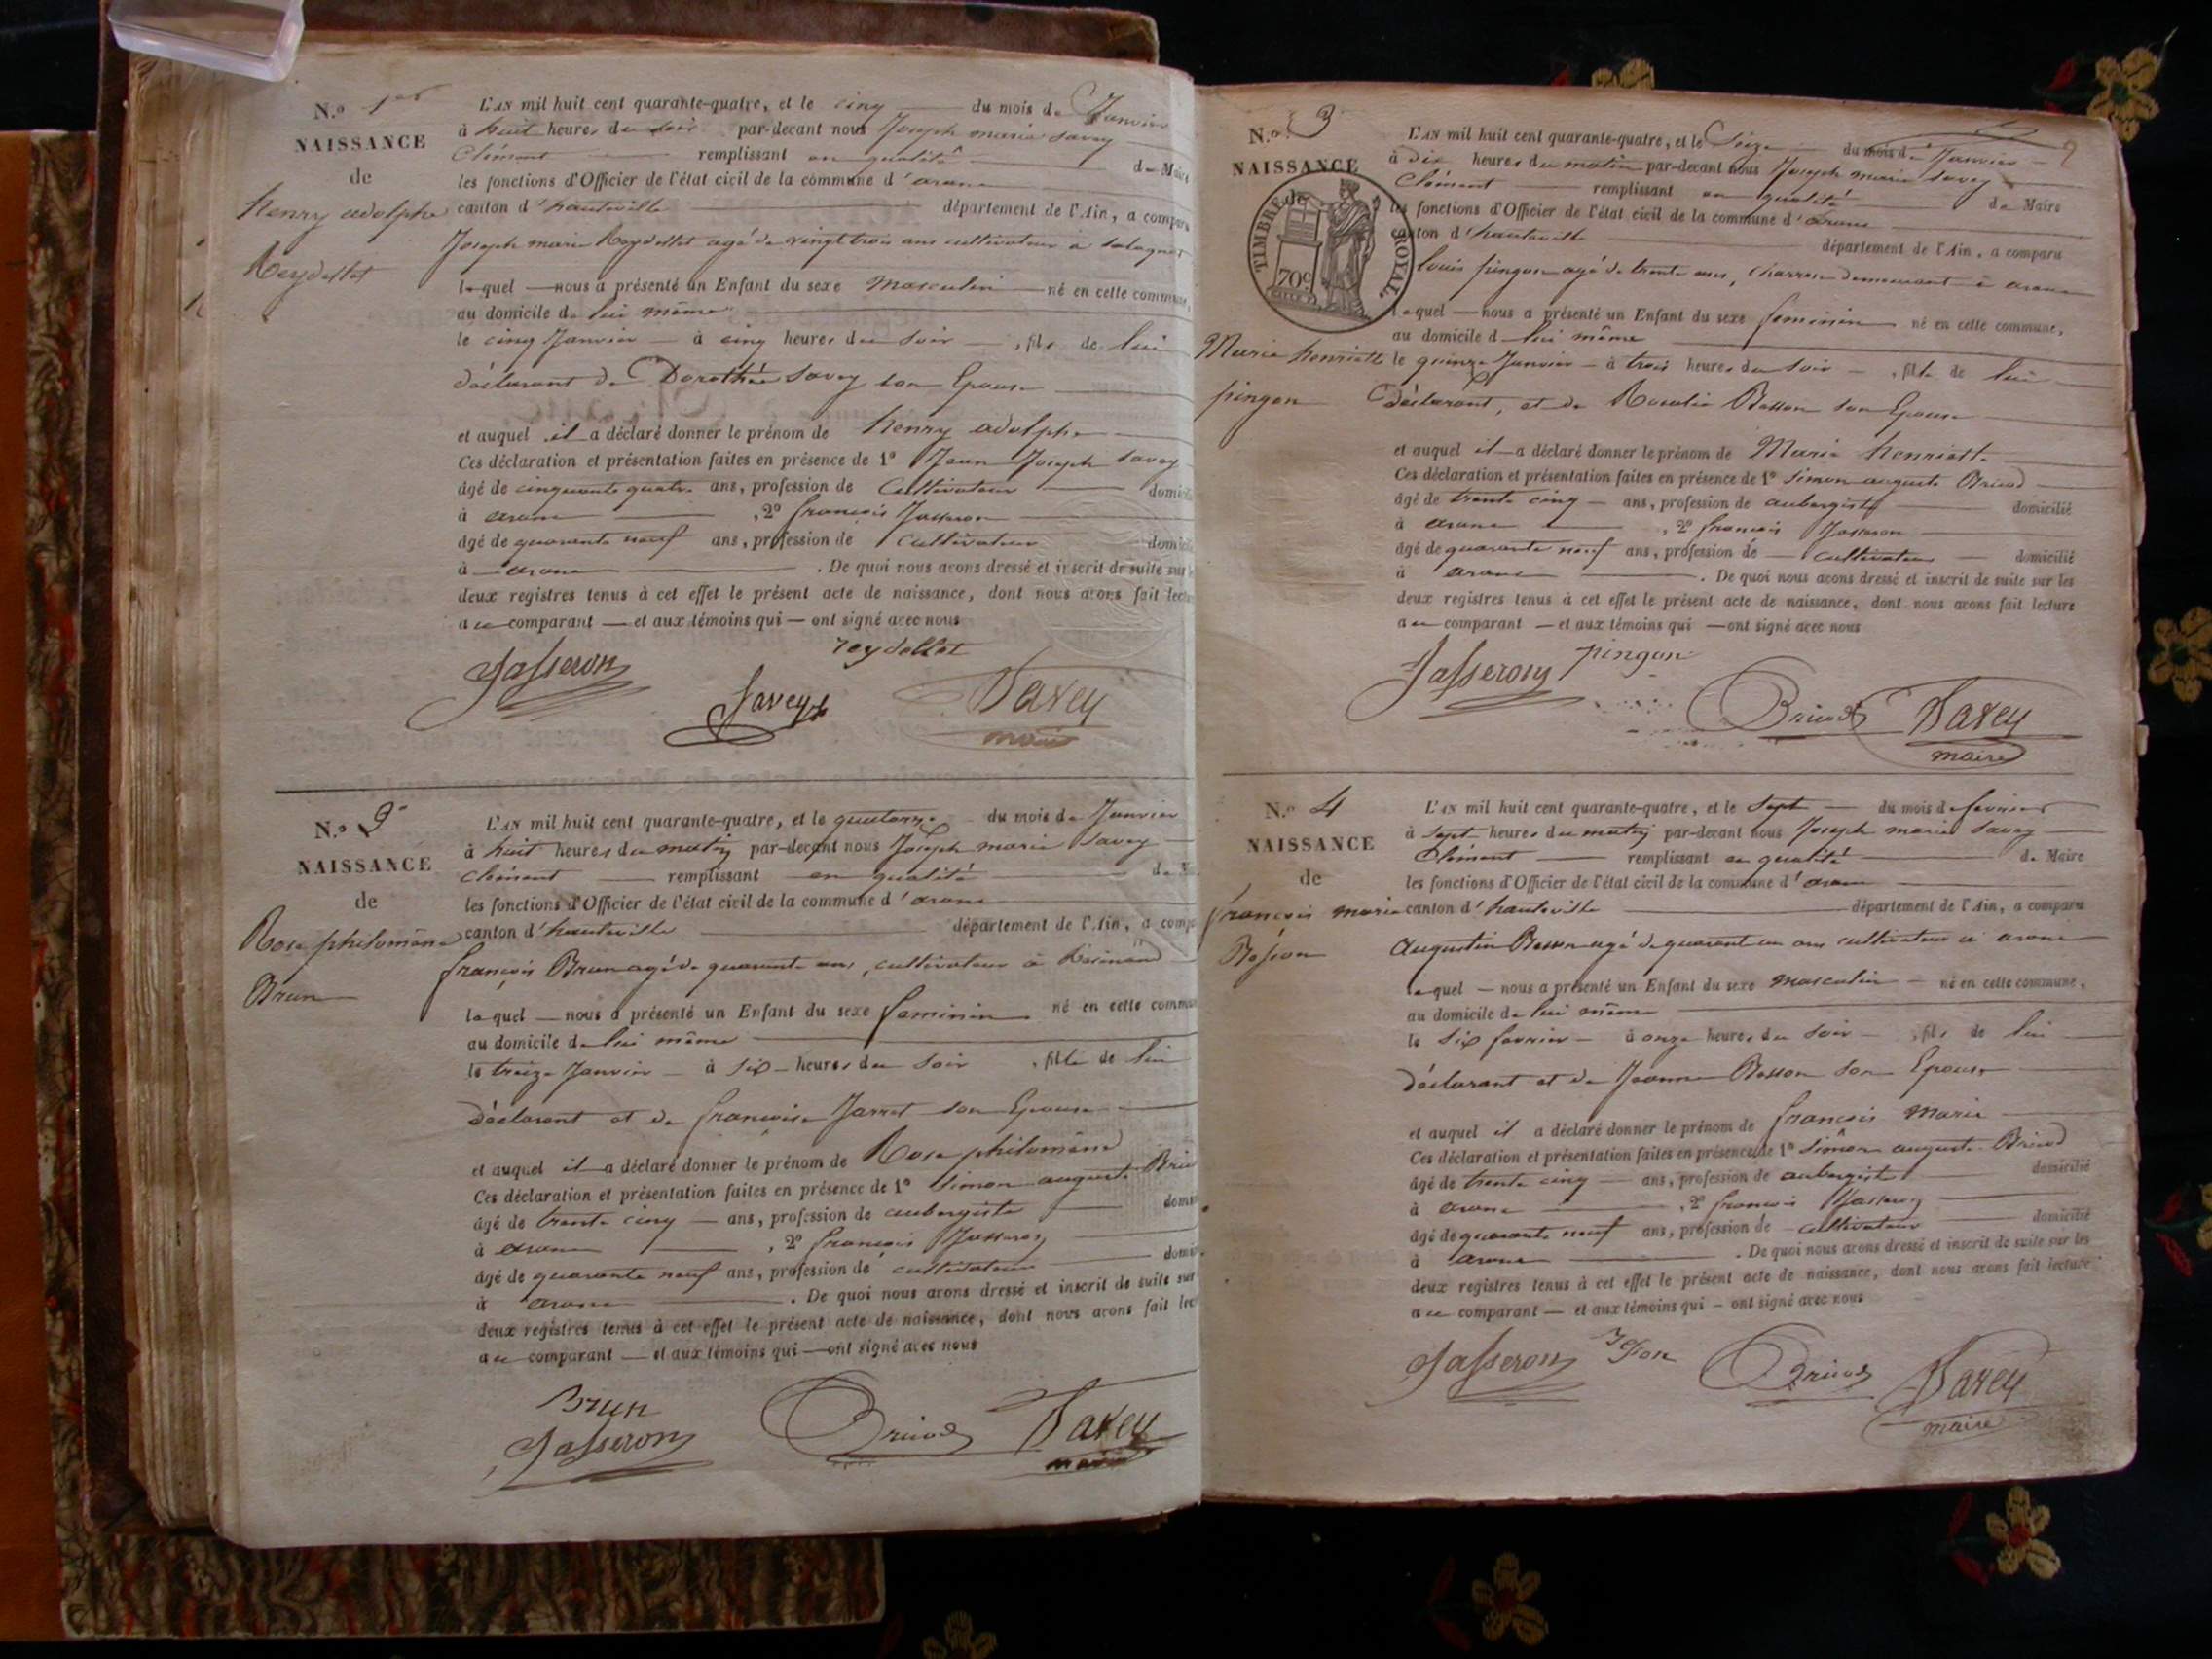 N.º 1er
NAISSANCE
de
henry adolphe
Reydellet
L'AN mil huit cent quarante-quatre, et le cinq du mois de Janvier
à huit heures du soir par-devant nous Joseph marie Savey
Clément remplissant en qualité de Maire
les fonctions d'Officier de l'état civil de la commune d'arane
canton d'hauteville département de l'Ain, a comparu
Joseph marie Reydellet agé de vingt trois ans cultivateur à
lequel nous a présenté un Enfant du sexe Masculin né en cette commune,
au domicile de lui même
le cinq Janvier à cinq heures du soir , fils de lui
déclarant de Dorothée Savey son Epouse
et auquel il a déclaré donner le prénom de henry adolphe
Ces déclaration et présentation faites en présence de 1º Jean Joseph Savey
âgé de cinquante quatre ans, profession de Cultivateur domicilié
à arane , 2º françois Jasseron
âgé de quarante neuf ans, profession de Cultivateur domicilié
à arane . De quoi nous avons dressé et inscrit de suite sur
deux registres tenus à cet effet le présent acte de naissance, dont nous avons fait lecture
au comparant et aux témoins qui ont signé avec nous
reydellet
Jasseron
Savey
Savey
maire
N.º 2
NAISSANCE
de
Rose philomène
Brun
L'AN mil huit cent quarante-quatre, et le quatorze du mois de Janvier
à huit heures du matin par-devant nous Joseph marie Savey
clément remplissant en qualité de
les fonctions d'Officier de l'état civil de la commune d'arane
canton d'hauteville département de l'Ain, a comp
françois Brun agé de quarante ans, cultivateur à
lequel nous a présenté un Enfant du sexe feminin né en cette commu
au domicile de lui même
le treize Janvier à six heures du soir , fille de lui
déclarant et de françoise Jarret son Epouse
et auquel il a déclaré donner le prénom de Rose philomène
Ces déclaration et présentation faites en présence de 1º Simon auguste Bric
âgé de trente cinq ans, profession de aubergiste domi
à arane , 2º françois Jasseron
âgé de quarante neuf ans, profession de cultivateur domi
à arane . De quoi nous avons dressé et inscrit de suite sur
deux registres tenus à cet effet le présent acte de naissance, dont nous avons fait lec
au comparant et aux témoins qui ont signé avec nous
Brun
Jasseron
Bricod
Savey
maire
N.º 3
NAISSANCE
TIMBRE ROYAL.
70c
Marie henriette
pingon
L'AN mil huit cent quarante-quatre, et le Seize du mois de Janvier
à Dix heures du matin par-devant nous Joseph marie Savey
Clément remplissant en qualité de Maire
les fonctions d'Officier de l'état civil de la commune d'arane
canton d'hauteville département de l'Ain, a comparu
louis pingon agé de trente ans, Charron demeurant à arane
lequel nous a présenté un Enfant du sexe feminin né en cette commune,
au domicile d lui même
le quinze Janvier à trois heures du soir , fille de lui
Déclarant, et de Rosalie Besson son Epouse
et auquel il a déclaré donner le prénom de Marie henriette
Ces déclaration et présentation faites en présence de 1º Simon auguste Bricod
âgé de trente cinq ans, profession de aubergiste domicilié
à arane , 2º françois Jasseron
âgé de quarante neuf ans, profession de cultivateur domicilié
à arane . De quoi nous avons dressé et inscrit de suite sur les
deux registres tenus à cet effet le présent acte de naissance, dont nous avons fait lecture
au comparant et aux témoins qui ont signé avec nous
Jasseron pingon
Bricod Savey
maire
N.º 4
NAISSANCE
de
françois marie
Besson
L'AN mil huit cent quarante-quatre, et le Sept du mois de fevrier
à sept heures du matin par-devant nous Joseph marie Savey
Clément remplissant en qualité de Maire
les fonctions d'Officier de l'état civil de la commune d'arane
canton d'hauteville département de l'Ain, a comparu
Augustin Besson agé de quarante un ans cultivateur à arane
lequel nous a présenté un Enfant du sexe masculin né en cette commune,
au domicile de lui même
le Six fevrier à onze heures du soir , fils de lui
déclarant et de Jeanne Besson son Epouse
et auquel il a déclaré donner le prénom de françois Marie
Ces déclaration et présentation faites en présence de 1º Simon auguste Bricod
âgé de trente cinq ans, profession de aubergiste domicilié
à arane , 2º françois Jasseron
âgé de quarante neuf ans, profession de cultivateur domicilié
à arane . De quoi nous avons dressé et inscrit de suite sur les
deux registres tenus à cet effet le présent acte de naissance, dont nous avons fait lecture
au comparant et aux témoins qui ont signé avec nous
Jasseron
Bricod
Savey
maire